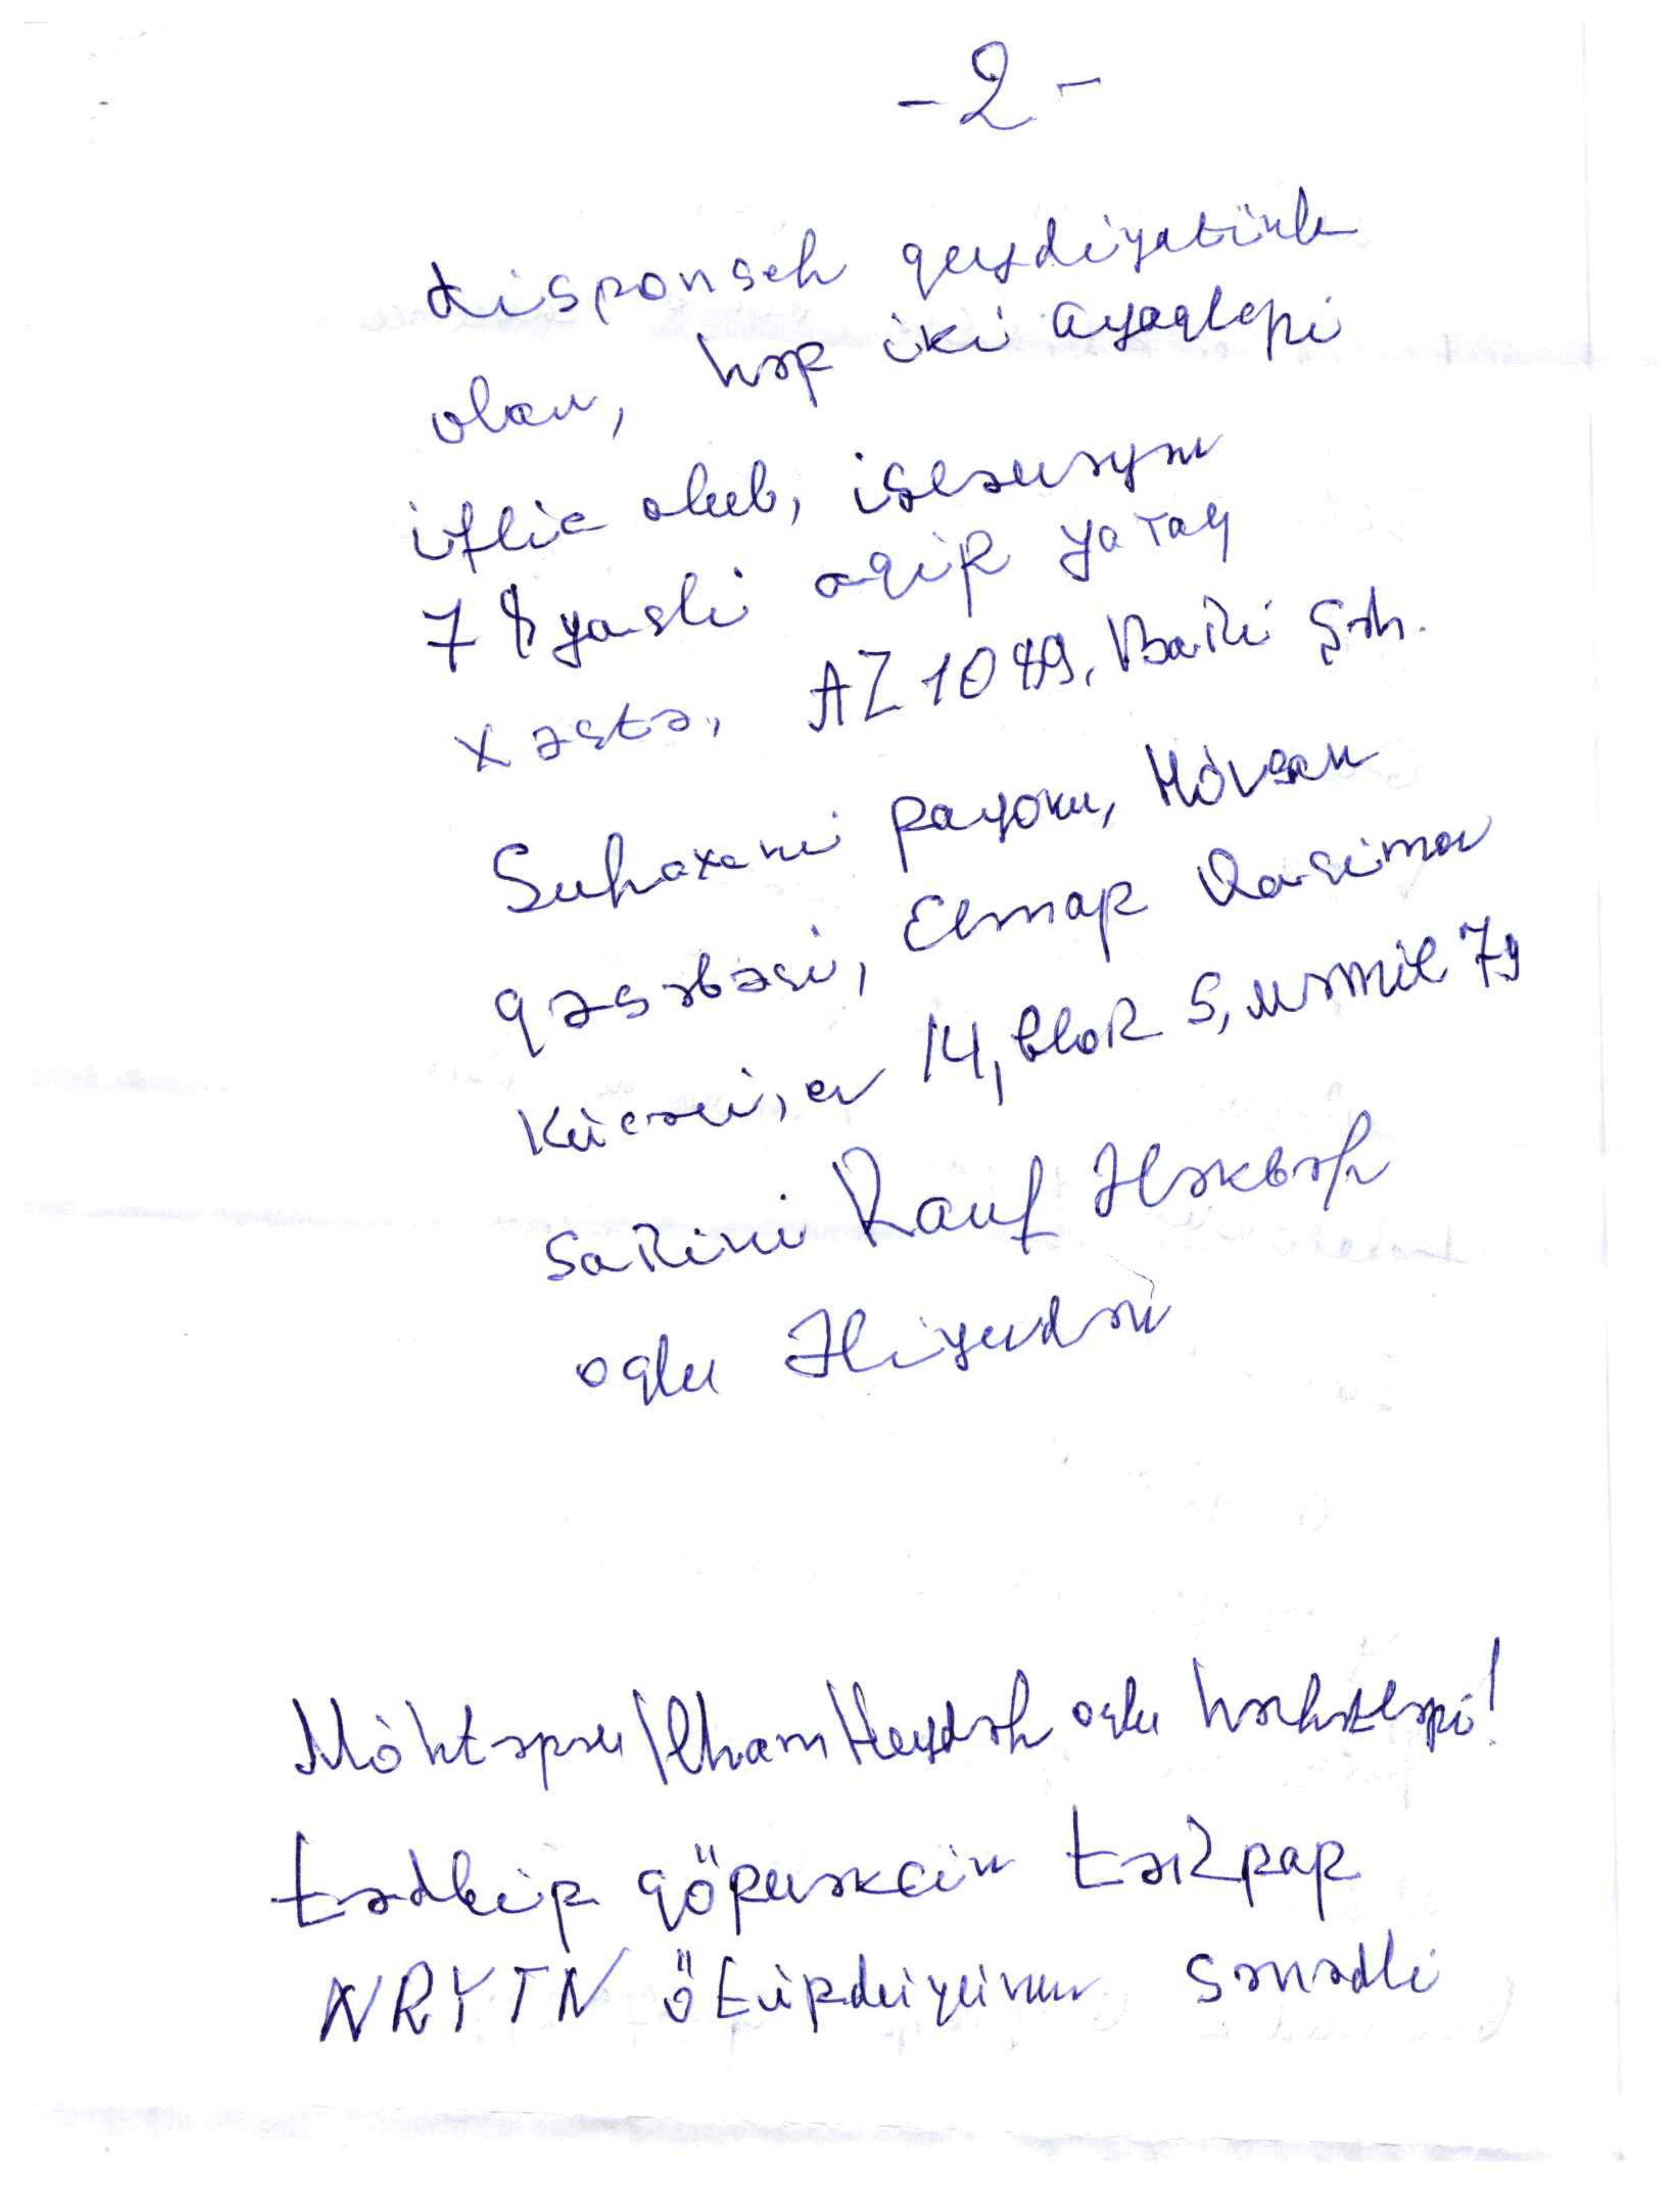 -2-
dispanser qeydiyatında
olan, hər iki ayaqləri
iflic olub, işləməyən
78 yaşli ağir yataq
xəstə, AZ 1049, Baki Şəh.
Suraxani rayonu, Hövsan
qəsəbəsi, Elmar Qasimov
Küçəsi, ev 14, blok 5, mənzil 79
sakini Rauf Ələkbər
oğlu Əliyevdən
Möhtərəm İlham Heydər oğlu həzrətləri!
tədbir görməkçin təkrar
NRYTN ötürdüyünüz sənədli